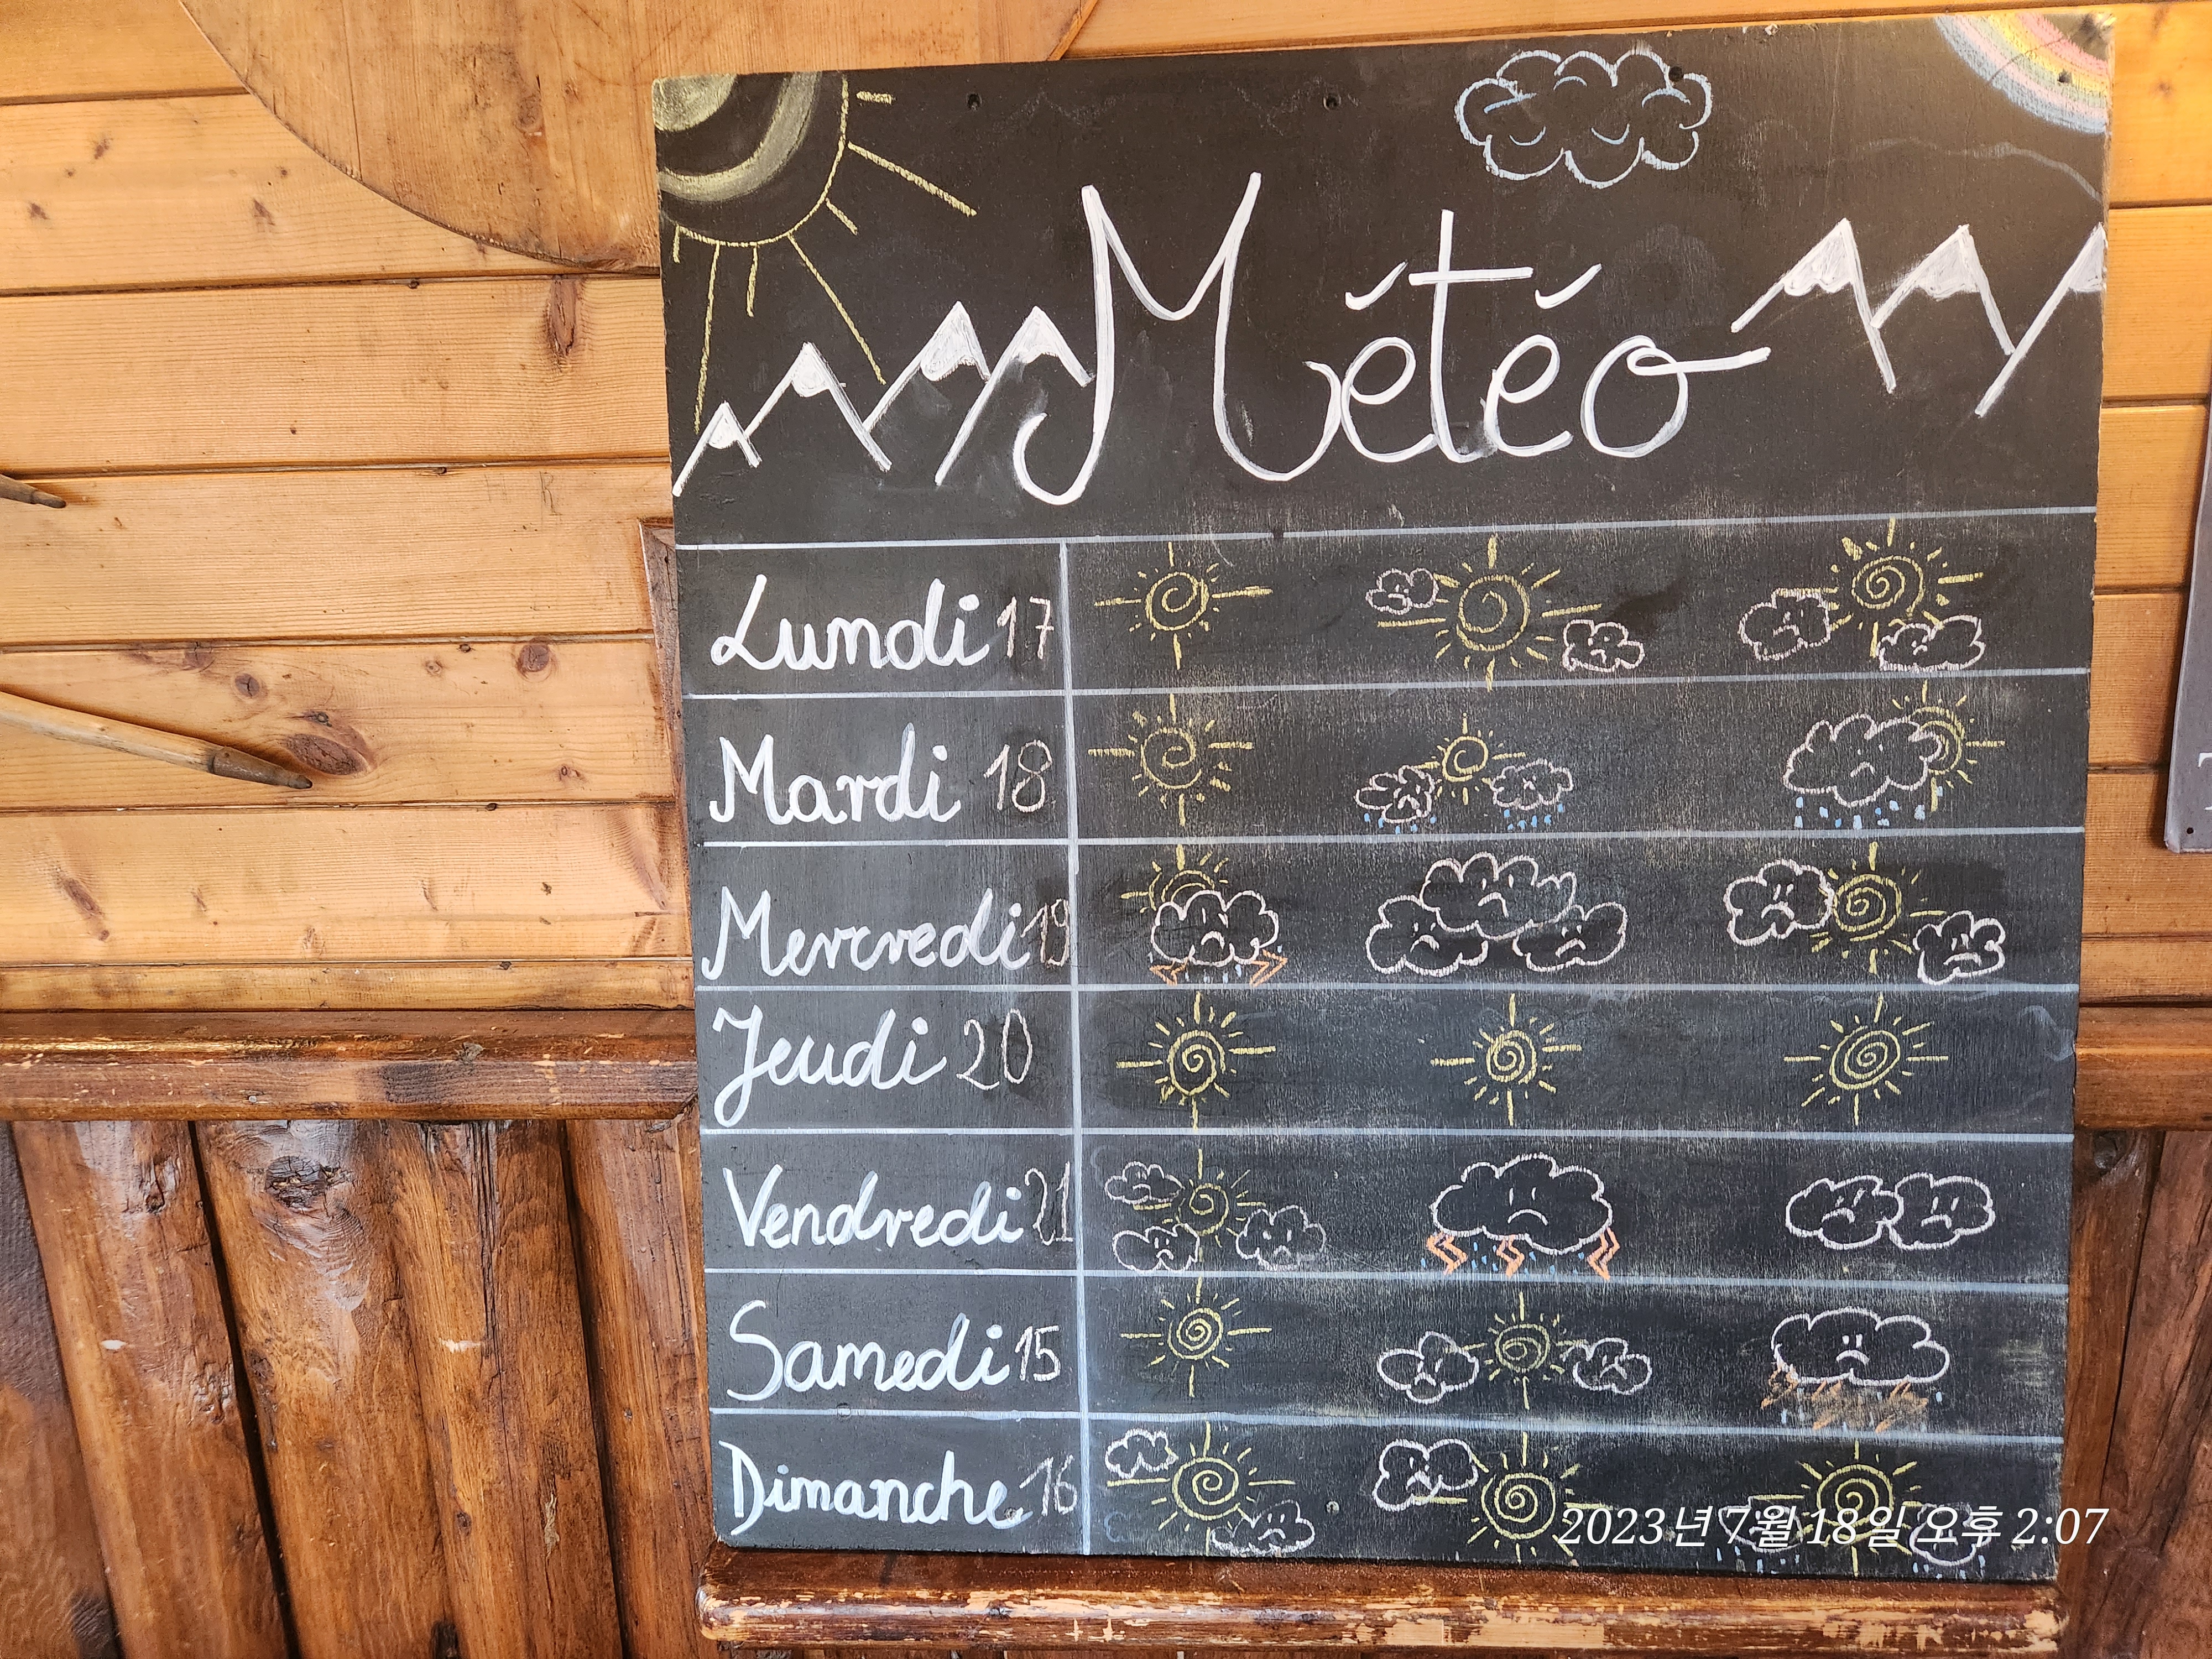 Météo
Lundi 17
Mardi 18
Mercredi 19
Jeudi 20
Vendredi 21
Samedi 15
Dimanche 16
2023년 7월 18일 오후 2:07